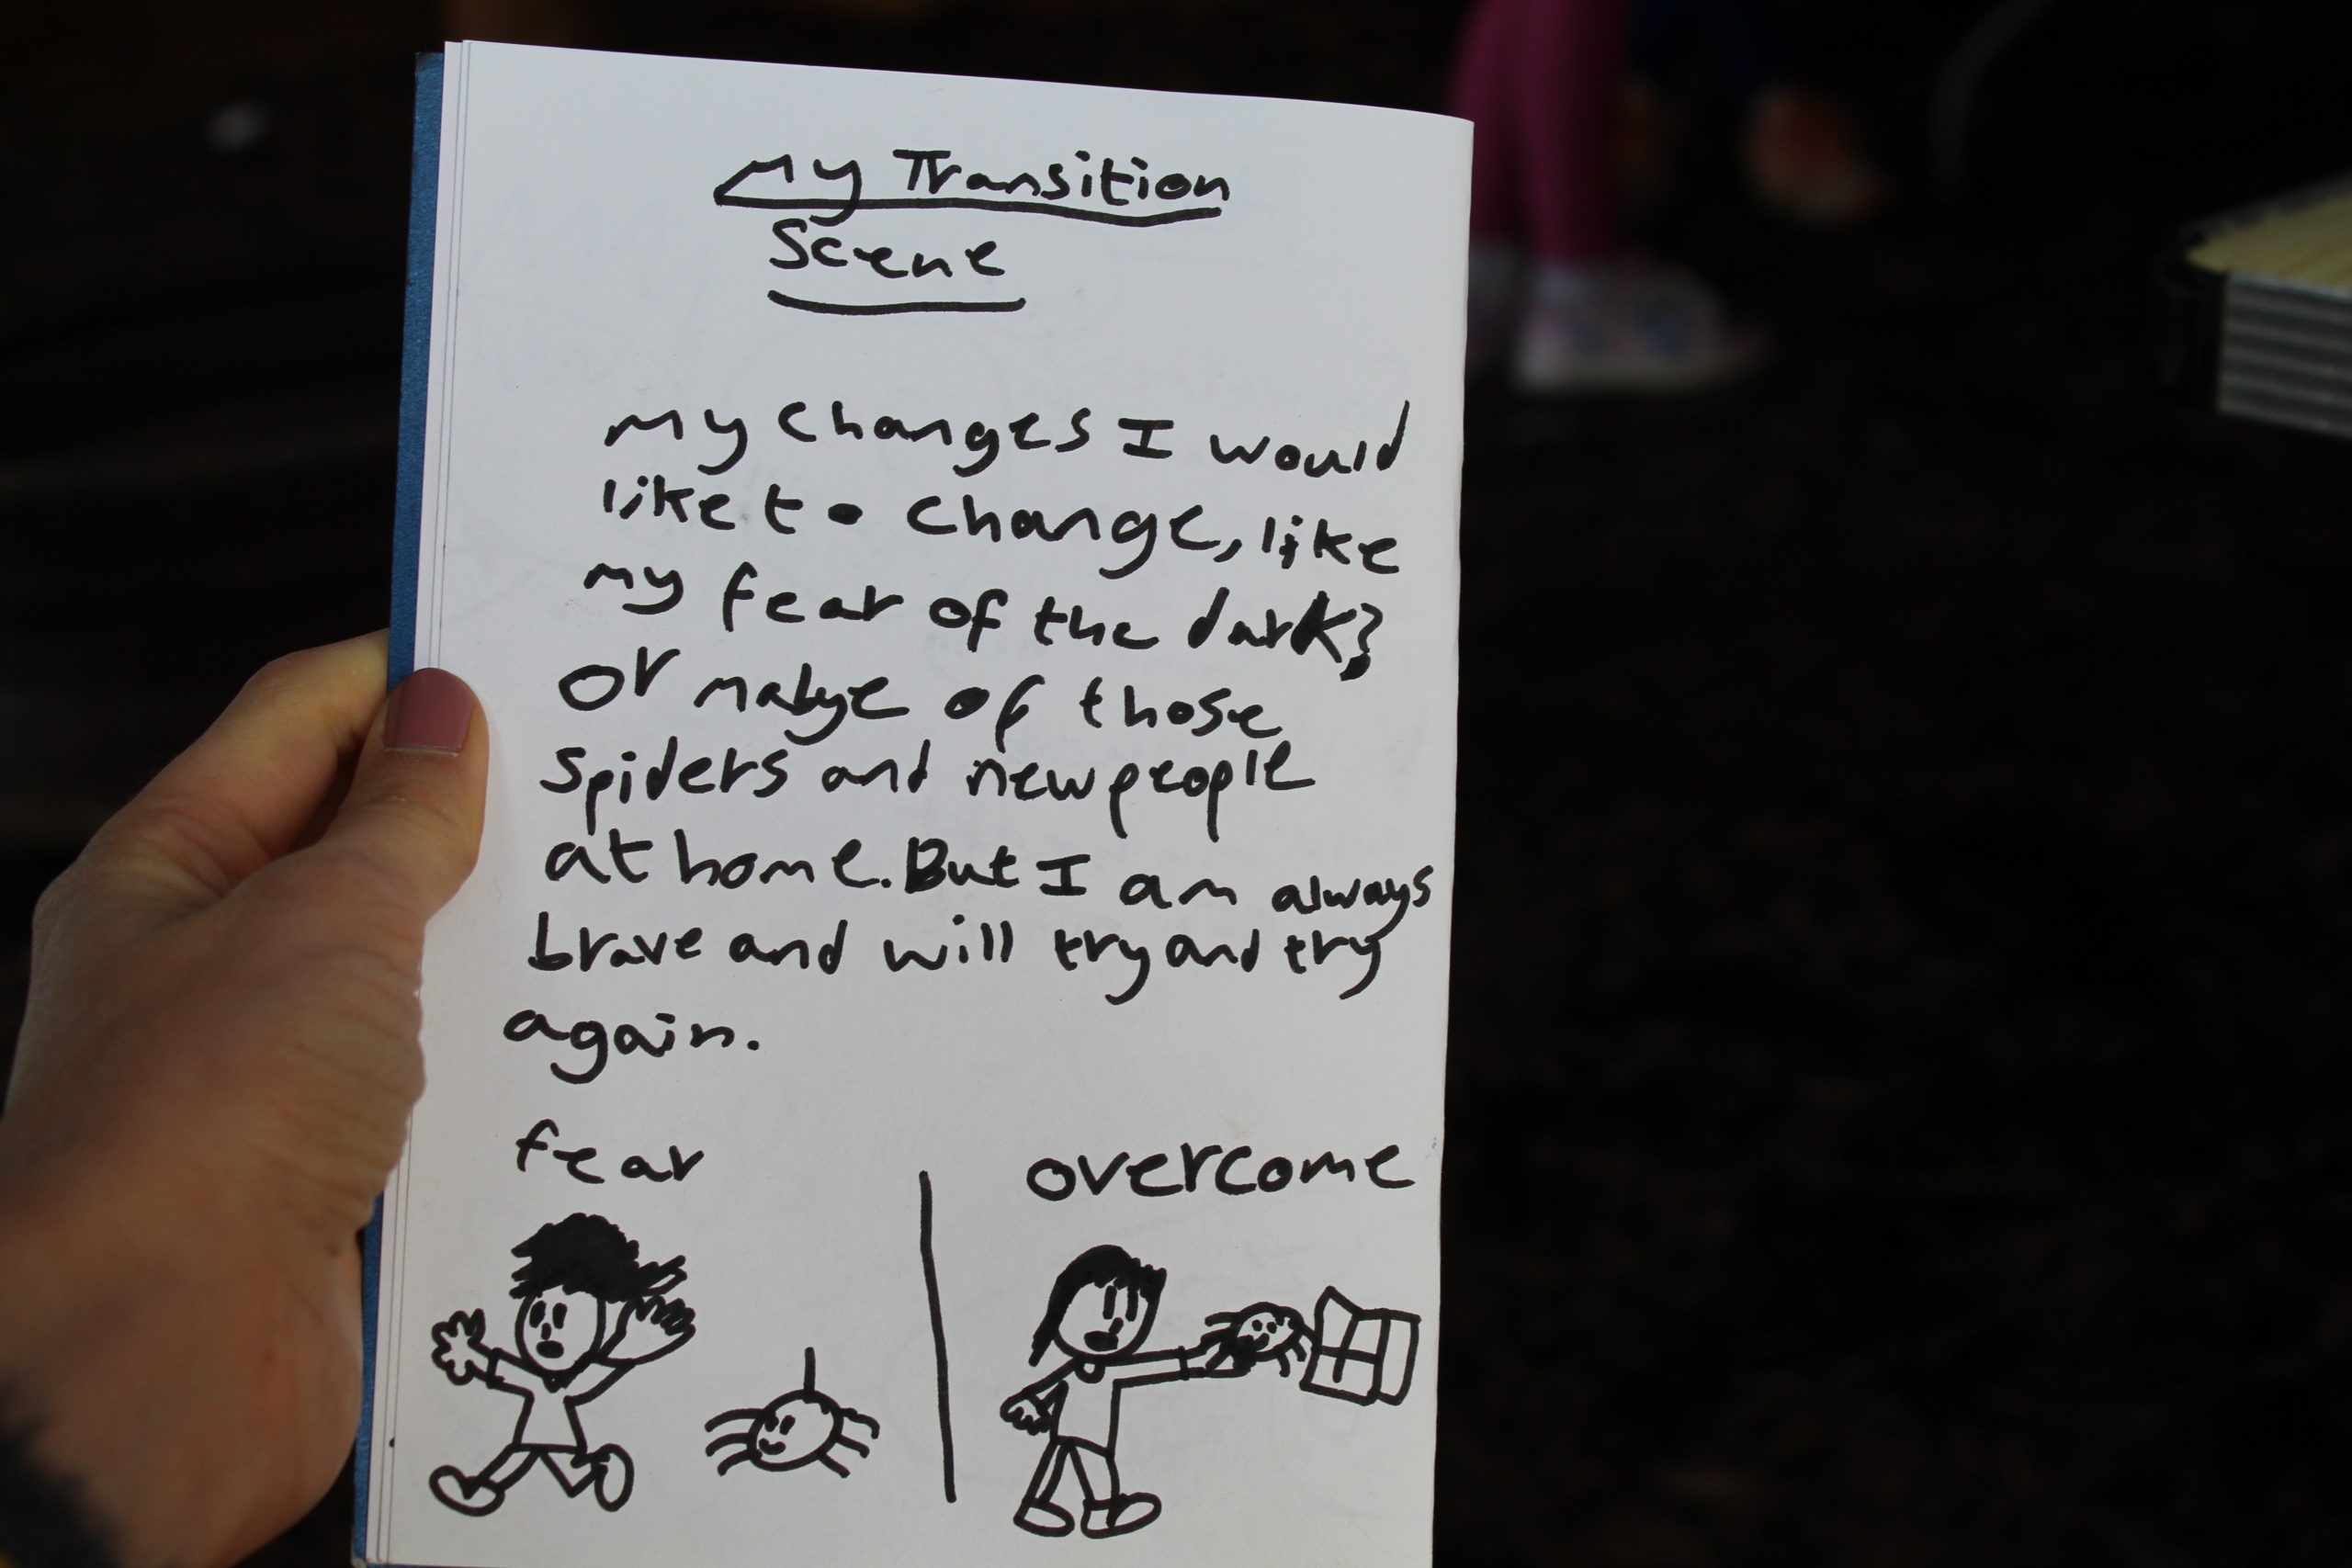 My Transition
Scene
My changes I would
like to change, like
my fear of the dark?
or mabye of those
spiders and new people
at home. But I am always
brave and will try and try
again.
fear
overcome